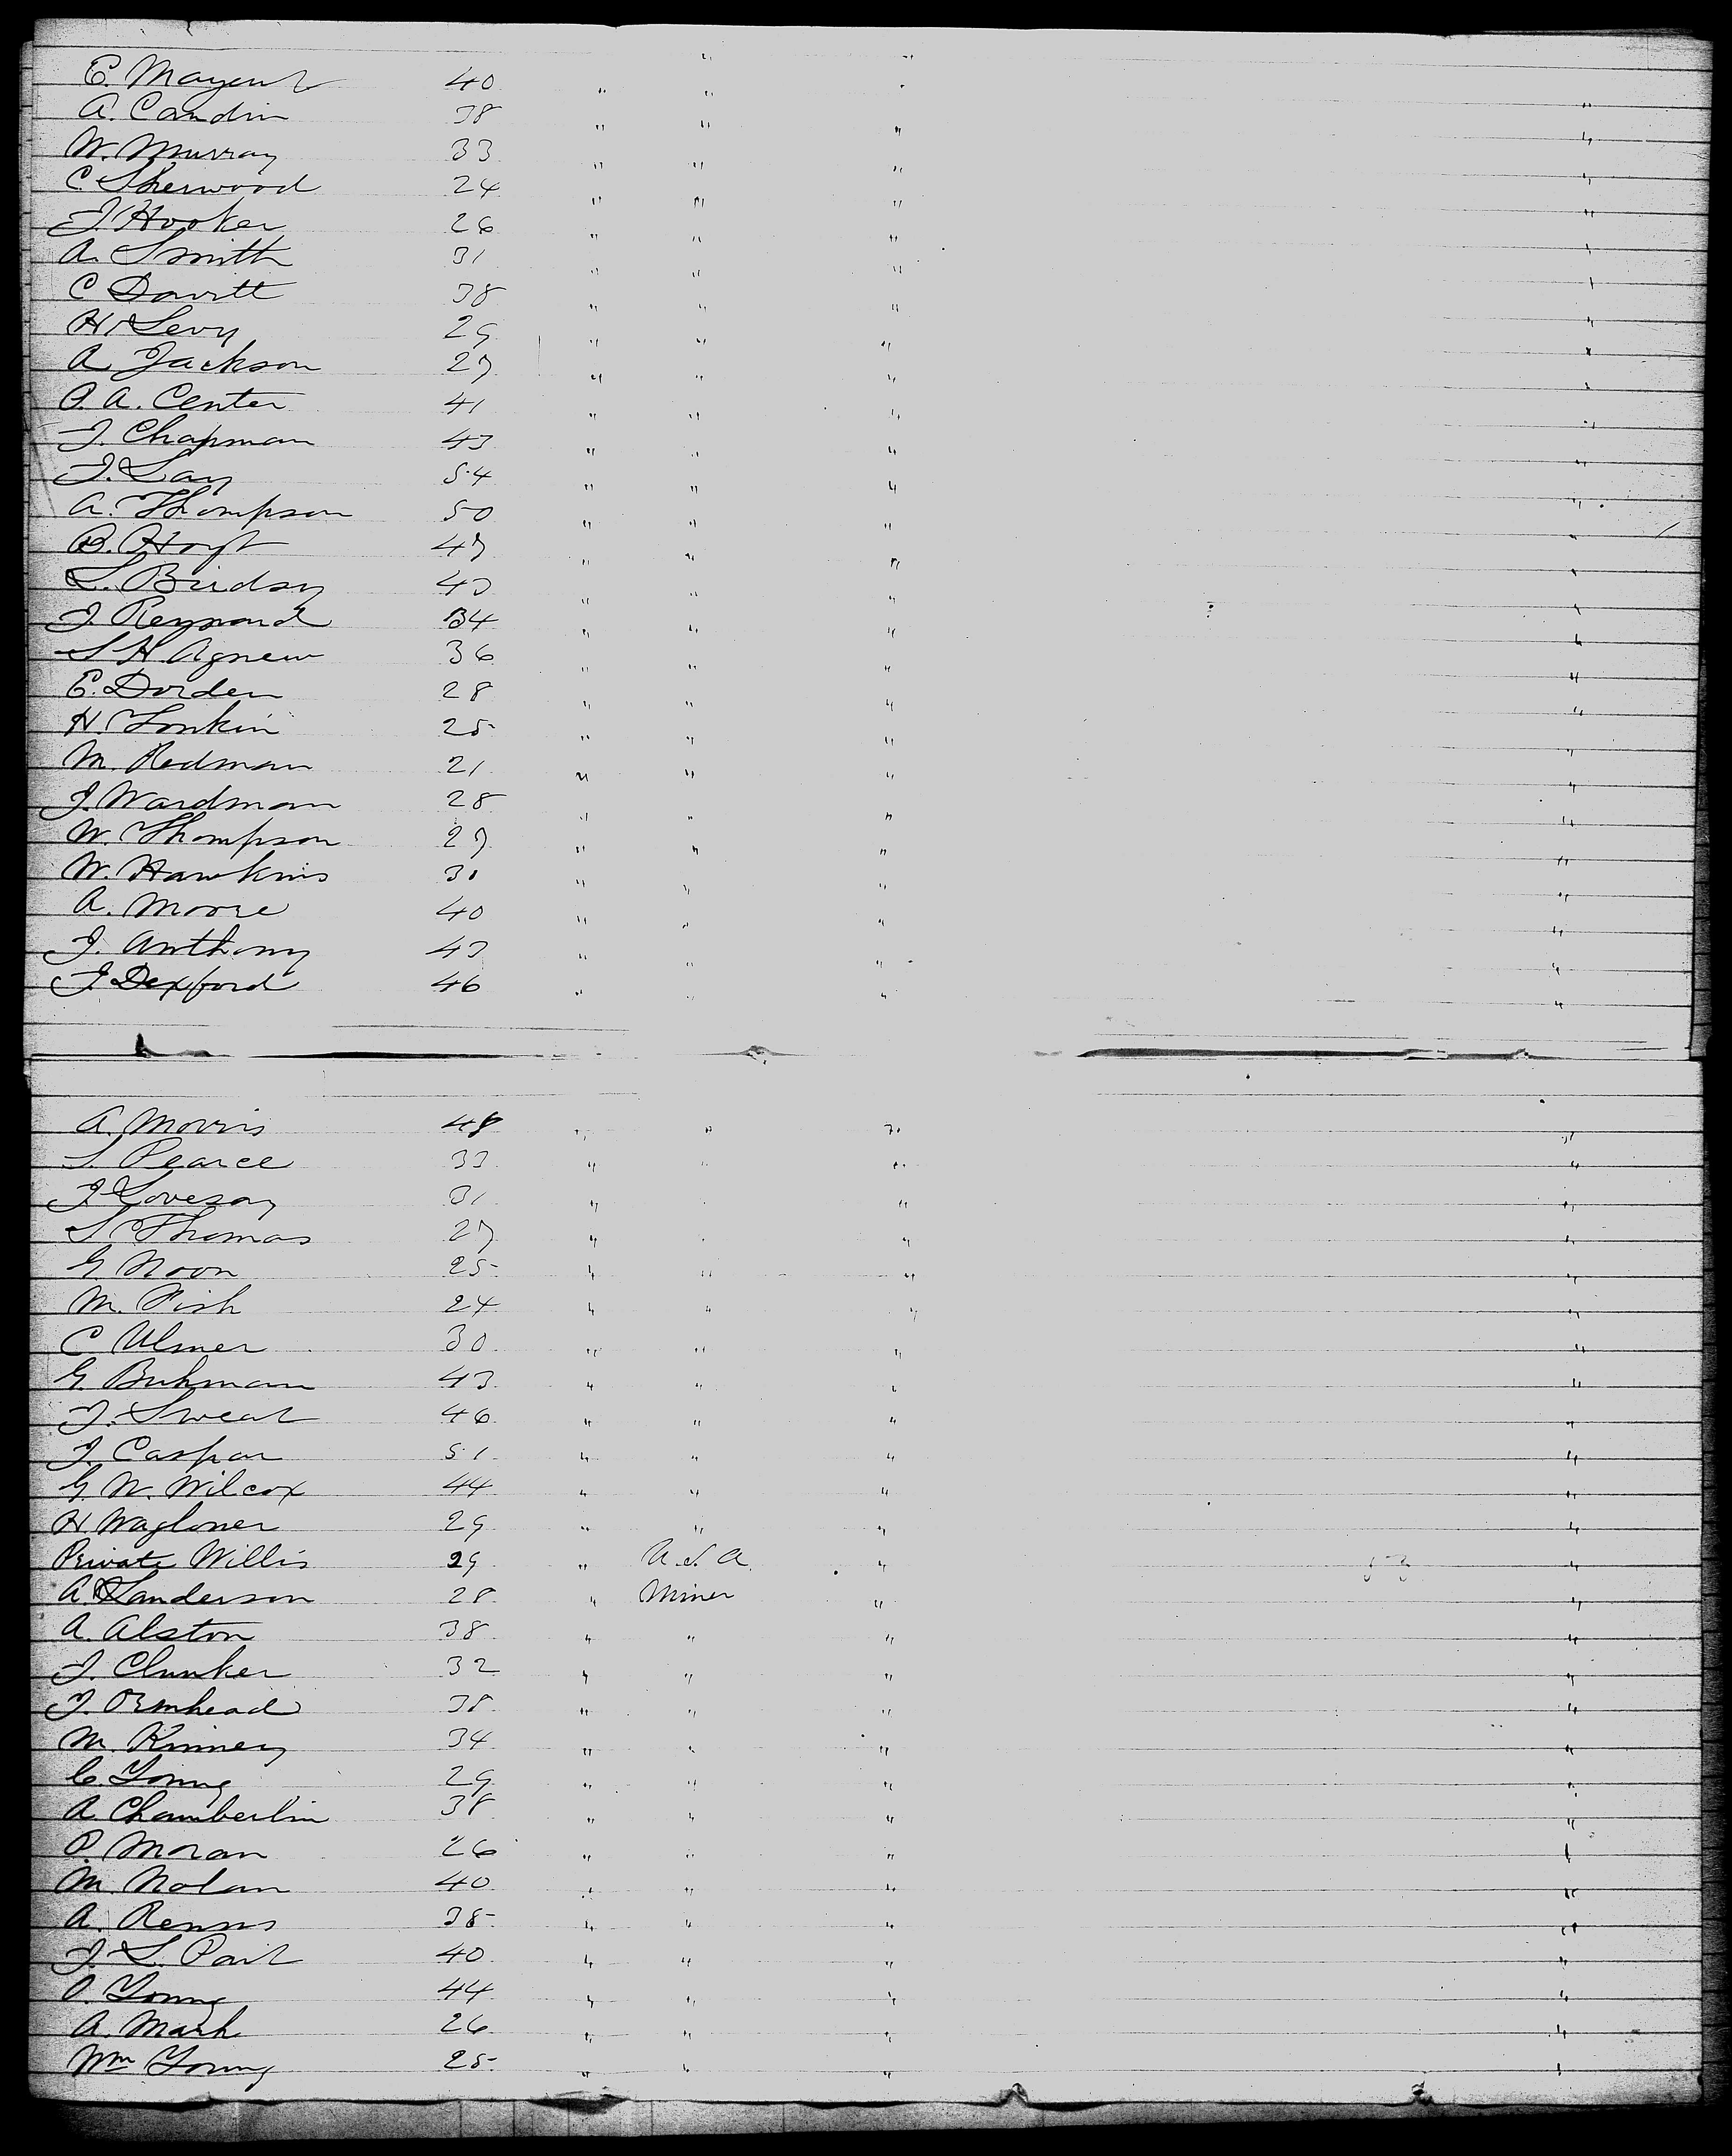 E. Mayent 40 " " " "
A. Candin 38 " " " "
W. Murray 33 " " " "
C. Sherwood 24 " " " "
J. Hooker 26 " " " "
A. Smith 31 " " " "
C Davitt 38 " " " "
H. Levy 29 " " " "
A Jackson 27 " " " "
P. A. Center 41 " " " "
J. Chapman 43 " " " "
J. Lay 54 " " " "
A. Thompson 50 " " " "
B. Hoyt 47 " " " "
L. Birdsy 43 " " " "
J. Reynard 34 " " " "
S H. Agnew 36 " " " "
E. Dorden 28 " " " "
H. Tonkin 25 " " " "
M. Redman 21 " " " "
J. Wardman 28 " " " "
W. Thompson 27 " " " "
W. Hawkins 31 " " " "
A. Moore 40 " " " "
J. Anthony 43 " " " "
J Dexford 46 " " " "
A. Morris 48 " " " "
S. Pearce 33 " " " "
J. Lovesay 31 " " "
S Thomas 27 " " " "
G Noon 25 " " " "
M. Fish 24 " " " "
C Ulmer 30 " " " "
G. Buhman 43 " " " "
J. Sweat 46 " " " "
J. Caspar 51 " " " "
G. W. Wilcox 44 " " " "
H. Wagloner 29 " " " "
Private Willis 29 " U. S. A. " "
A. Sanderson 28 " Miner " "
A. Alston 38 " " " "
J. Clunker 32 " " " "
J. Ormhead 38 " " " "
M. Kinney 34 " " " "
C. Young 29 " " " "
A Chamberlin 38 " " " "
P. Moran 26 " " " "
M. Nolan 40 " " " "
A. 38 " " " "
J. L. 40 " " " "
O. Young 44 " " " "
A. Mark 26 " " " "
Wm Young 25 " " " "